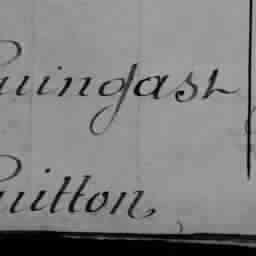 Guingast
Guitton,